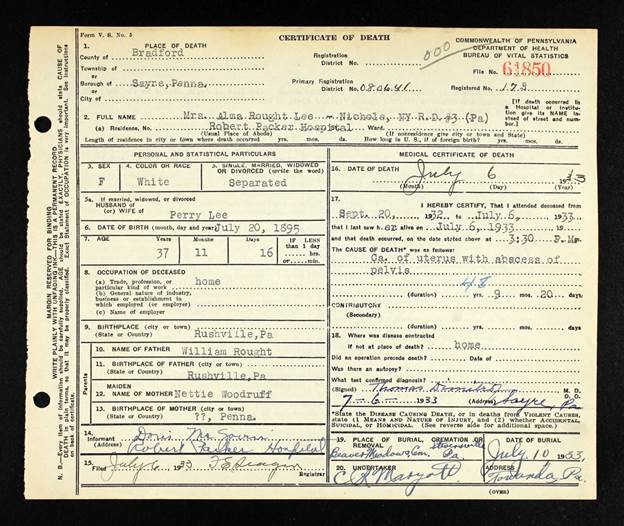 Form V. S. No. 5
CERTIFICATE OF DEATH
COMMONWEALTH OF PENNSYLVANIA
DEPARTMENT OF HEALTH
BUREAU OF VITAL STATISTICS
1. PLACE OF DEATH
County of Bradford
Registration District No.
000
File No. 61850
Township of
or
Borough of Sayre, Penna.
Primary Registration District No. 08.06.41
Registered No. 173
or
City of
[If death occurred in a Hospital or institution give its NAME instead of street and number.]
2. FULL NAME Mrs. Alma Rought Lee - Nichols, NY R.D.#3 (Pa)
(a) Residence, No. Robert Packer Hospital Ward.
(Usual Place of Abode) (If nonresidence give city or town and State)
Length of residence in city or town where death occurred yrs. mos. days. How long in U. S., if of foreign birth? yrs. mos. days.
PERSONAL AND STATISTICAL PARTICULARS
3. SEX
F
4. COLOR OR RACE
White
5. SINGLE, MARRIED, WIDOWED OR DIVORCED (write the word)
Separated
5a. If married, widowed, or divorced
HUSBAND of
(or) WIFE of Perry Lee
6. DATE OF BIRTH (month, day and year) July 20, 1895
7. AGE
Years Months Days
37 11 16
If LESS than 1 day, hrs. or min.
8. OCCUPATION OF DECEASED
(a) Trade, profession, or particular kind of work home
(b) General nature of industry, business or establishment in which employed (or employer)
(c) Name of employer
9. BIRTHPLACE (city or town) Rushville, Pa
(State or Country)
Parents
10. NAME OF FATHER William Rought
11. BIRTHPLACE OF FATHER (city or town)
(State or Country) Rushville, Pa
12. MAIDEN NAME OF MOTHER Nettie Woodruff
13. BIRTHPLACE OF MOTHER (city or town)
(State or Country) ??, Penna.
14. Informant Doris
(Address) Robert Packer Hospital
15. July 6 1933
MEDICAL CERTIFICATE OF DEATH
16. DATE OF DEATH July 6 1933
(Month) (Day) (Year)
17. I HEREBY CERTIFY, That I attended deceased from
Sept. 20, 1932 to July 6, 1933
that I last saw her alive on July 6, 1933
and that death occurred, on the date stated above at 3:30 P.M.
The CAUSE OF DEATH* was as follows:
Ca. of uterus with abscess of
pelvis
48
(duration) yrs. 9 mos. 20 days.
CONTRIBUTORY
(Secondary)
(duration) yrs. mos. days.
18. Where was disease contracted
if not at place of death? home
Did an operation precede death? Date of
Was there an autopsy?
What test confirmed diagnosis?
(Signed) Thomas M. D.
7-6-1933 (Address) Sayre, Pa
*State the DISEASE CAUSING DEATH, or in deaths from VIOLENT CAUSES, state (1) MEANS AND NATURE OF INJURY, and (2) whether ACCIDENTAL, SUICIDAL, or HOMICIDAL. (See reverse side for additional space.)
19. PLACE OF BURIAL, CREMATION OR REMOVAL
Stevensville
Beaver Meadows Cem. Pa
DATE OF BURIAL
July 10 1933
20. UNDERTAKER
ADDRESS
Towanda, Pa.
(OVER)
MARGIN RESERVED FOR BINDING
WRITE PLAINLY WITH UNFADING INK—THIS IS A PERMANENT RECORD